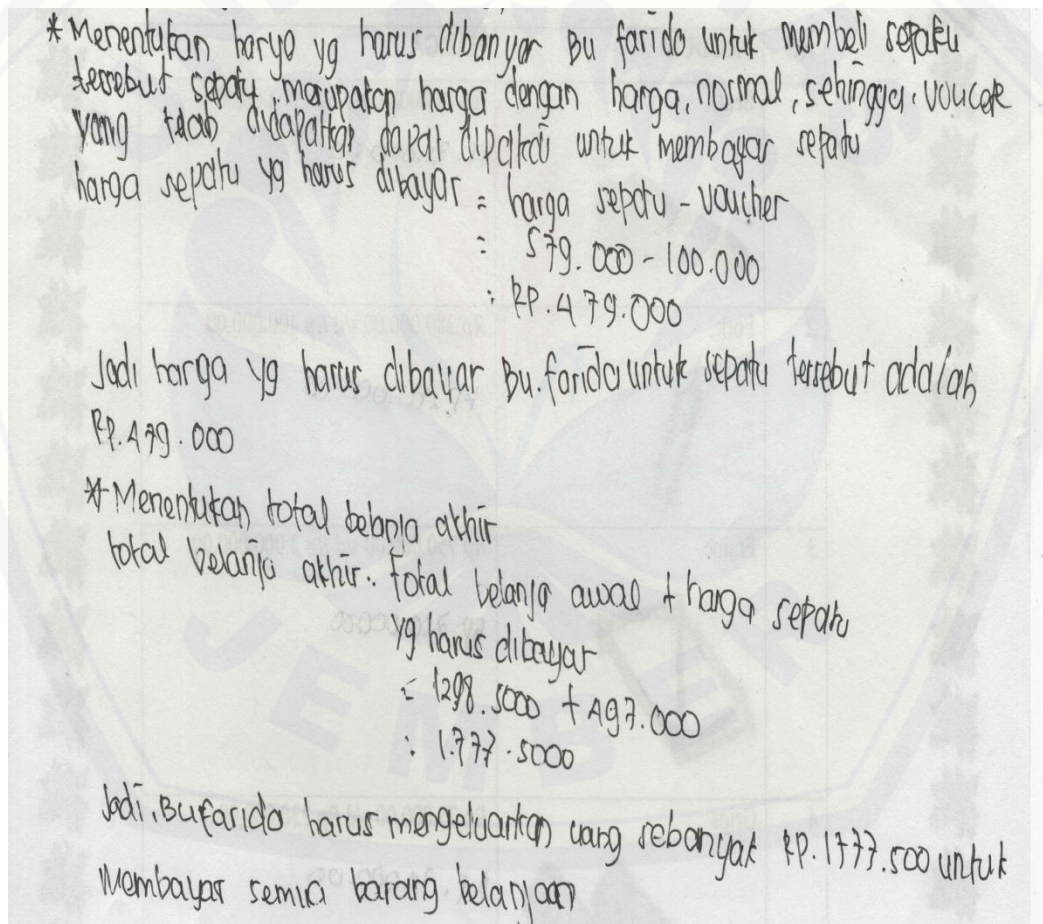 * Menentukan harga yg harus dibanyar Bu farida untuk membeli sepatu
tersebut sepatu, merupakan harga dengan harga, normal, sehingga, voucer
yang telah didapatkan dapat dipakai untuk membayar sepatu
harga sepatu yg harus dibayar = harga sepatu - voucher
= 579.000 - 100.000
: RP. 479.000
Jadi harga yg harus dibayar Bu. farida untuk sepatu tersebut adalah
RP. 479.000
* Menentukan total belanja akhir
total belanja akhir : total belanja awal + harga sepatu
yg harus dibayar
= 1298.5000 + 497.000
: 1.777.5000
Jadi, Bu farida harus mengeluarkan uang sebanyak RP. 1777.500 untuk
Membayar semua barang belanjaan
JEMBER